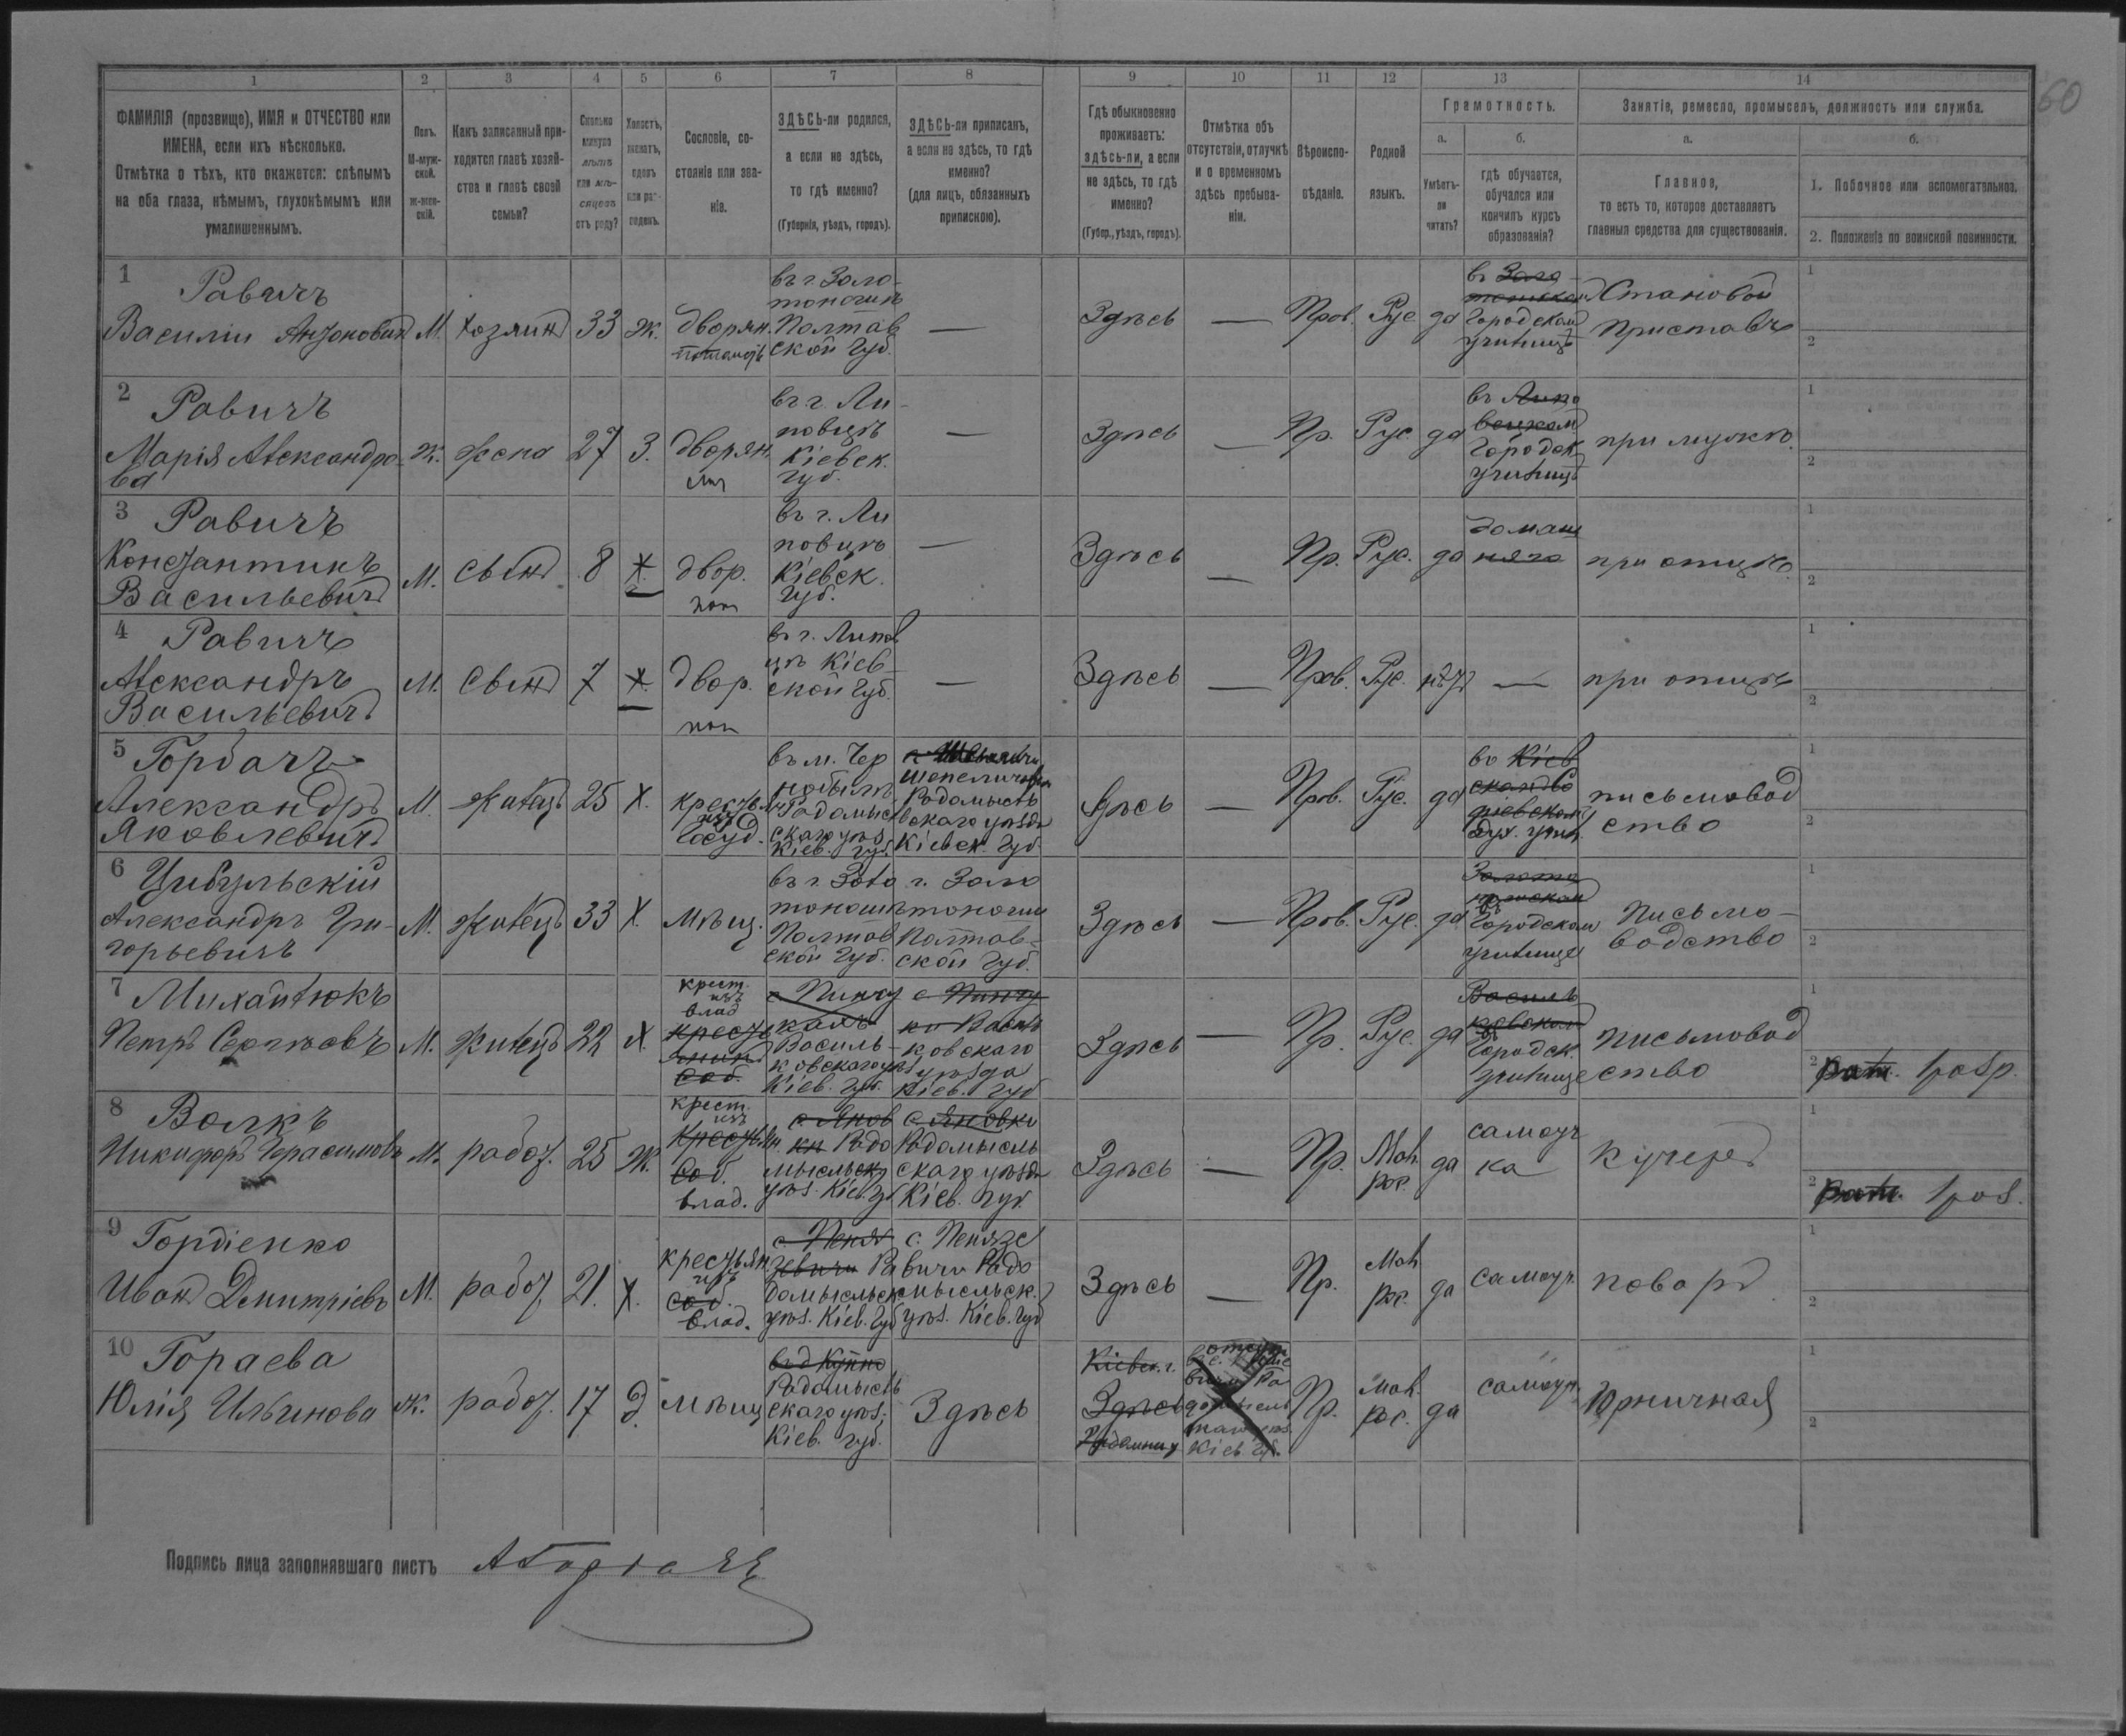 60
1 2 3 4 5 6 7 8 9 10 11 12 13 14
ФАМИЛІЯ (прозвище), ИМЯ и ОТЧЕСТВО или
ИМЕНА, если ихъ нѣсколько.
Отмѣтка о тѣхъ, кто окажется: слѣпымъ
на оба глаза, нѣмымъ, глухонѣмымъ или
умалишеннымъ.
Полъ.
М-муж-
ской.
ж-жен-
скій.
Какъ записанный при-
ходится главѣ хозяй-
ства и главѣ своей
семьи?
Сколько
минуло
лѣтъ
или мѣ-
сяцевъ
отъ роду?
Холостъ,
женатъ,
вдовъ
или раз-
веденъ.
Сословіе, со-
стояніе или зва-
ніе.
ЗДѢСЬ-ли родился,
а если не здѣсь,
то гдѣ именно?
(Губернія, уѣздъ, городъ).
ЗДѢСЬ-ли приписанъ,
а если не здѣсь, то гдѣ
именно?
(для лицъ, обязанныхъ
припискою).
Гдѣ обыкновенно
проживаетъ:
здѣсь-ли, а если
не здѣсь, то гдѣ
именно?
(Губер., уѣздъ, городъ).
Отмѣтка объ
отсутствіи, отлучкѣ
и о временномъ
здѣсь пребыва-
ніи.
Вѣроиспо-
вѣданіе.
Родной
языкъ.
Грамотность.
а.
Умѣетъ-
ли
читать?
б.
гдѣ обучается,
обучался или
кончилъ курсъ
образованія?
Занятіе, ремесло, промыселъ, должность или служба.
а.
Главное,
то есть то, которое доставляетъ
главныя средства для существованія.
б.
1. Побочное или вспомогательное.
2. Положеніе по воинской повинности.
1
Равичъ
Василій Антоновичъ
М.
хозяинъ
33
Ж.
дворян.
потомств
въ г. Золо-
тоношѣ
Полтав
ской губ.
—
Здѣсь
—
Прав.
Рус.
да
въ Золо
тоношском
Городском
училищѣ
Становой
Приставъ
1
2
2
Равичъ
Марія Александро-
ва
Ж.
жена
27
З.
дворян.
въ г. Ли-
повцѣ
Кіевск.
губ.
—
Здѣсь
—
Пр.
Рус.
да
въ Липо
вецком
Городск.
училищѣ
при мужѣ.
1
2
3
Равичъ
Константинъ
Васильевичъ
М.
сынъ
8
Х.
двор.
пот
въ г. Ли
повцѣ
Кіевск.
губ.
—
Здѣсь
—
Пр.
Рус.
да
домаш
няго
при отцѣ.
1
2
4
Равичъ
Александръ
Васильевичъ
М.
сынъ
7
Х.
двор.
пот
въ г. Липов
цѣ Кіев-
ской губ.
—
Здѣсь
—
Прав.
Рус.
нѣтъ
—
при отцѣ
1
2
5
Горбачъ
Александръ
Яковлевичъ
М.
жилецъ
25
Х.
крестьян
изъ
Госуд.
въ м. Чер
нобылѣ
Радомысл
скаго уѣз.
Кіев. губ.
Радомысль
скаго уѣзда
Кіевск. губ
Здѣсь
—
Прав.
Рус.
да
въ Кіев
ском Со
фіевском
дух. учил.
письмовод
ство
1
2
6
Цибульскій
Александръ Гри-
горьевичъ
М.
жилецъ
33
Х.
мѣщ.
въ г. Золо
тоношѣ
Полтав
ской губ.
г. Золо
тоноши
Полтав-
ской губ.
Здѣсь
—
Прав.
Рус.
да
Золото
ношском
въ
Городском
училище
Письмо-
водство
1
2
7
Михайлюкъ
Петръ Сергѣевъ
М.
жилецъ
22
Х
крест.
изъ
влад
с Пинчу
кахъ
Василь-
ковскаго уѣз
Кіев. губ.
с Пинчу
ки Василь
ковскаго
уѣзда
Кіев. губ
Здѣсь
—
Пр.
Рус.
да
Василь
ковском
въ
Городск.
училище
письмовод
ство
1
2 рат. 1 раз р.
8
Волкъ
Никифоръ Герасимовъ
М.
рабоч.
25
Ж.
крест.
изъ
Соб.
влад.
с Янов
ки Радо
мысльск
уѣз. Кіев. губ
с Яновки
Радомысль
скаго уѣзда
Кіев. губ.
Здѣсь
—
Пр.
Мал.
рос.
да
самоуч
ка
кучеръ
1
2 рат. 1 раз.
9
Гордіенко
Иванъ Дмитріевъ
М.
рабоч
21.
Х.
крестьян.
изъ
соб.
влад.
с. Пеня
зевичи Ра
домысльск
уѣз. Кіев. губ
с. Пенязе
вичи Радо
мысльск.
уѣз. Кіев. губ
Здѣсь
—
Пр.
Мал
рос.
да
самоуч.
поваръ
1
2
10
Гораева
Юлія Ильинова
Ж.
рабоч.
17
Д.
мѣщ
Радомысль
скаго уѣз;
Кіев. губ.
Здѣсь
Кіевск. г.
Здѣсь
Пр.
Мал.
рос.
да
самоуч.
Горничная
1
2
Подпись лица заполнявшаго листъ АГорбачъ